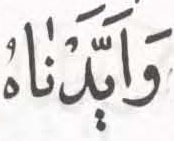 وَاَيَّدْنٰاهُ